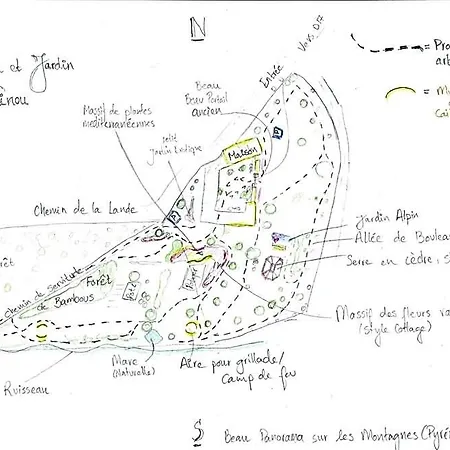 N
Vers D17
Entrée
et Jardin
= Pro
Beau
Beau Portail
ancien
Massif de plantes
méditerranéennes
petit
Jardin
Maison
P
P
Chemin de la Lande
Jardin Alpin
Allée de Boulea
Serre en cèdre, s
Chemin de Servitude
Forêt
de Bambous
Massif des fleurs va
(style Cottage)
Mare
(Naturelle)
Aire pour grillade/
Camp de feu
Ruisseau
S
Beau Panorama sur les Montagnes (Pyré